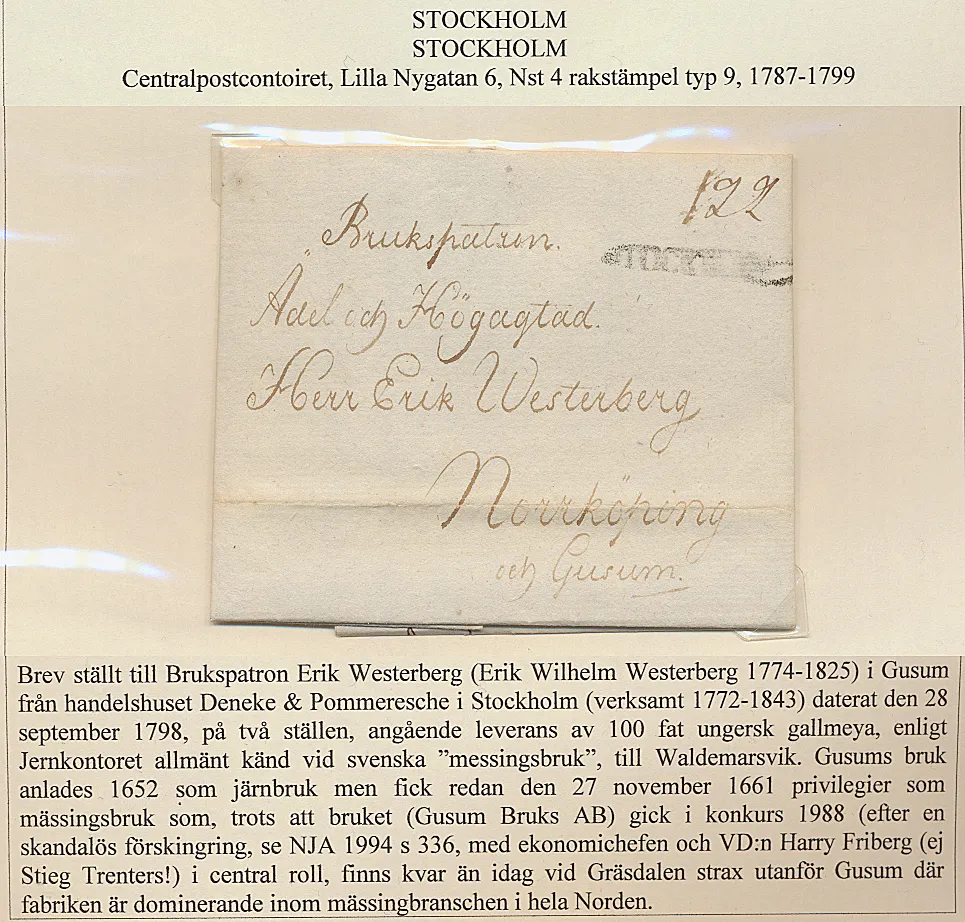 STOCKHOLM
STOCKHOLM
Centralpostcontoiret, Lilla Nygatan 6, Nst 4 rakstämpel typ 9, 1787-1799
122
Brukspatron.
STOCKH
Ädel och Högagtad.
Herr Erik Westerberg
Norrköping
och Gusum.
Brev ställt till Brukspatron Erik Westerberg (Erik Wilhelm Westerberg 1774-1825) i Gusum
från handelshuset Deneke & Pommeresche i Stockholm (verksamt 1772-1843) daterat den 28
september 1798, på två ställen, angående leverans av 100 fat ungersk gallmeya, enligt
Jernkontoret allmänt känd vid svenska ”messingsbruk”, till Waldemarsvik. Gusums bruk
anlades 1652 som järnbruk men fick redan den 27 november 1661 privilegier som
mässingsbruk som, trots att bruket (Gusum Bruks AB) gick i konkurs 1988 (efter en
skandalös förskingring, se NJA 1994 s 336, med ekonomichefen och VD:n Harry Friberg (ej
Stieg Trenters!) i central roll, finns kvar än idag vid Gräsdalen strax utanför Gusum där
fabriken är dominerande inom mässingbranschen i hela Norden.